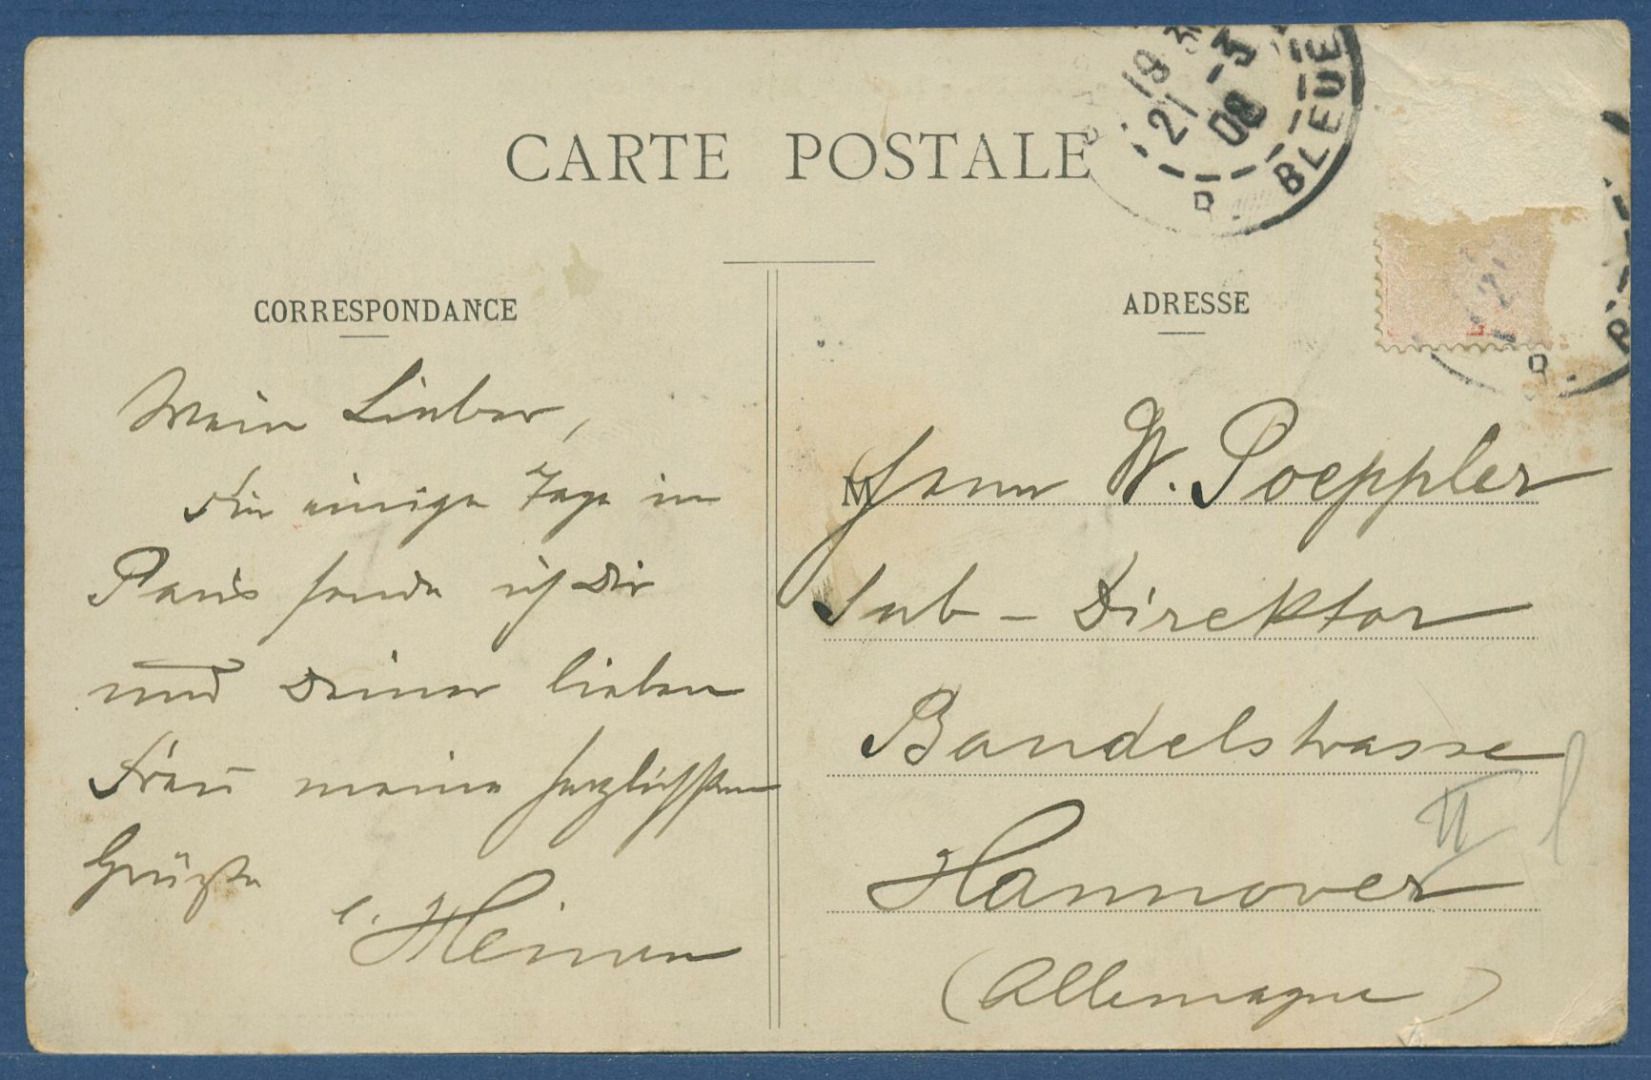 CARTE POSTALE
19 3
21 -3
08
R. BLEUE
CORRESPONDANCE
ADRESSE
Mein Lieber,
Für einige Tage in
Paris sende ich Dir
und Deiner lieben
Frau meine herzlichsten
Grüße
Heinen
M
Herrn W. Poeppler
Sub-Direktor
Bandelstrasse
II
Hannover
(Allemagne)
R.